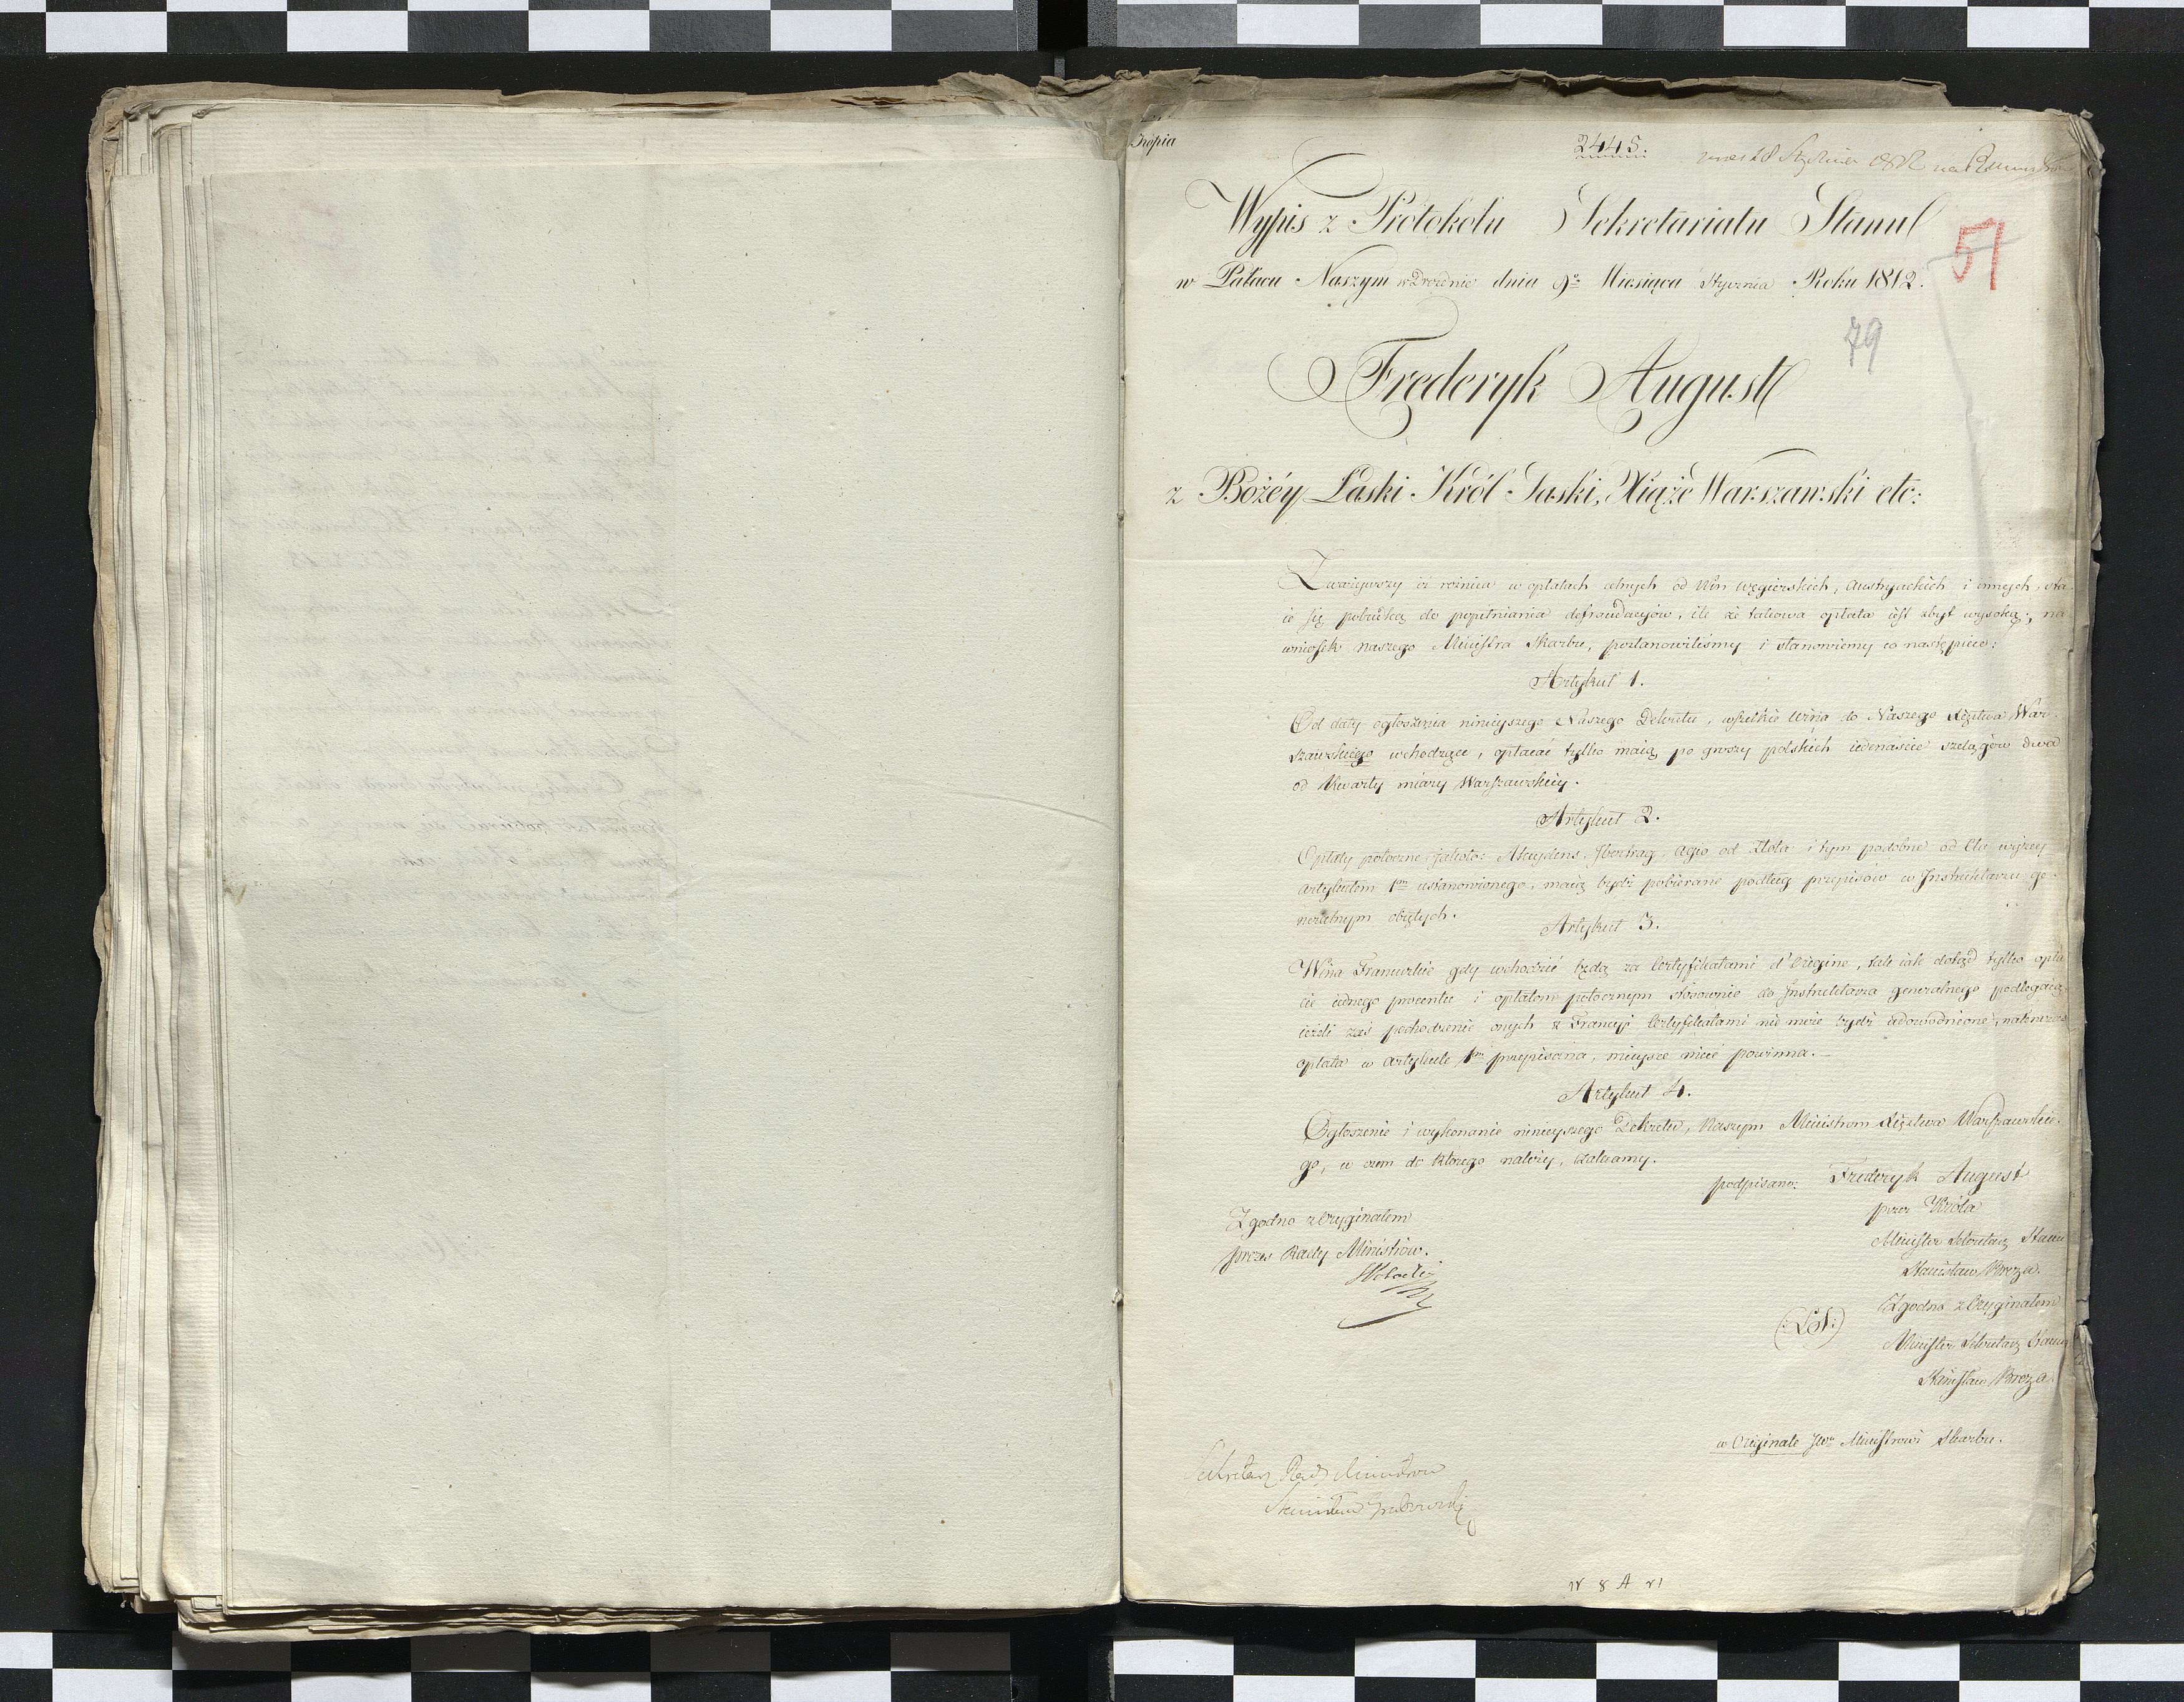 Kopia
2445.
51
Wypis z Protokołu Sekretariatu Stanu
w Pałacu Naszym w Dreznie dnia 9º Miesiąca Stycznia Roku 1812.
79
Frederyk August
z Bożéy Łaski Król Saski, Xiąże Warszawski etc:
Zważywszy iż rożnica w opłatach celnych od Win węgierskich, Austryackich i innych, sta-
ie się pobudką do popełniania defraudacyów, ile że takowa opłata iest zbyt wysoką; na
wniosek naszego Ministra Skarbu, postanowiliśmy i stanowiemy co następuie:
Artykuł 1.
Od daty ogłoszenia ninieyszego Naszego Dekretu, wszelkie Wina do Naszego Xięstwa War-
szawskiego wchodzące, opłacać tylko maią po groszy polskich iedenaście szelągów dwa
od Kwarty miary Warszawskiey.
Artykuł 2.
Opłaty poboczne jakoto: Akcydens, Ibertrag, Agio od Złota i tym podobne od Cła wyżey
artykułem 1m ustanowionego, maią bydź pobierane podług przepisów w Instruktarzu ge-
neralnym obiętych.
Artykuł 3.
Wina Francuzkie gdy wchodzić będą za Certyfikatami d'Origine, tak iak dotąd tylko opła-
cie iednego procentu i opłatom pobocznym stosownie do Instruktarza generalnego podlegaią,
ieżeli zaś pochodzenie onych z Francyi Certyfikatami nie może bydź udowodnione, natenczas
opłata w artykule 1m przepisana, mieysce mieć powinna.
Artykuł 4.
Ogłoszenie i wykonanie ninieyszego Dekretu, Naszym Ministrom Xięstwa Warszawskie-
go, w czem do którego należy, zalecamy.
podpisano: Frederyk August
przez Króla
Minister Sekretarz Stanu
Stanisław Breza.
Zgodno z Oryginałem
Prezes Rady Ministrow.
(:LS:)
Zgodno z Oryginałem
Minister Sekretarz Stanu
Stanisław Breza
w Originale JWu Ministrowi Skarbu.
Sekretarz Rady Ministrow
Stanisław Grabowski